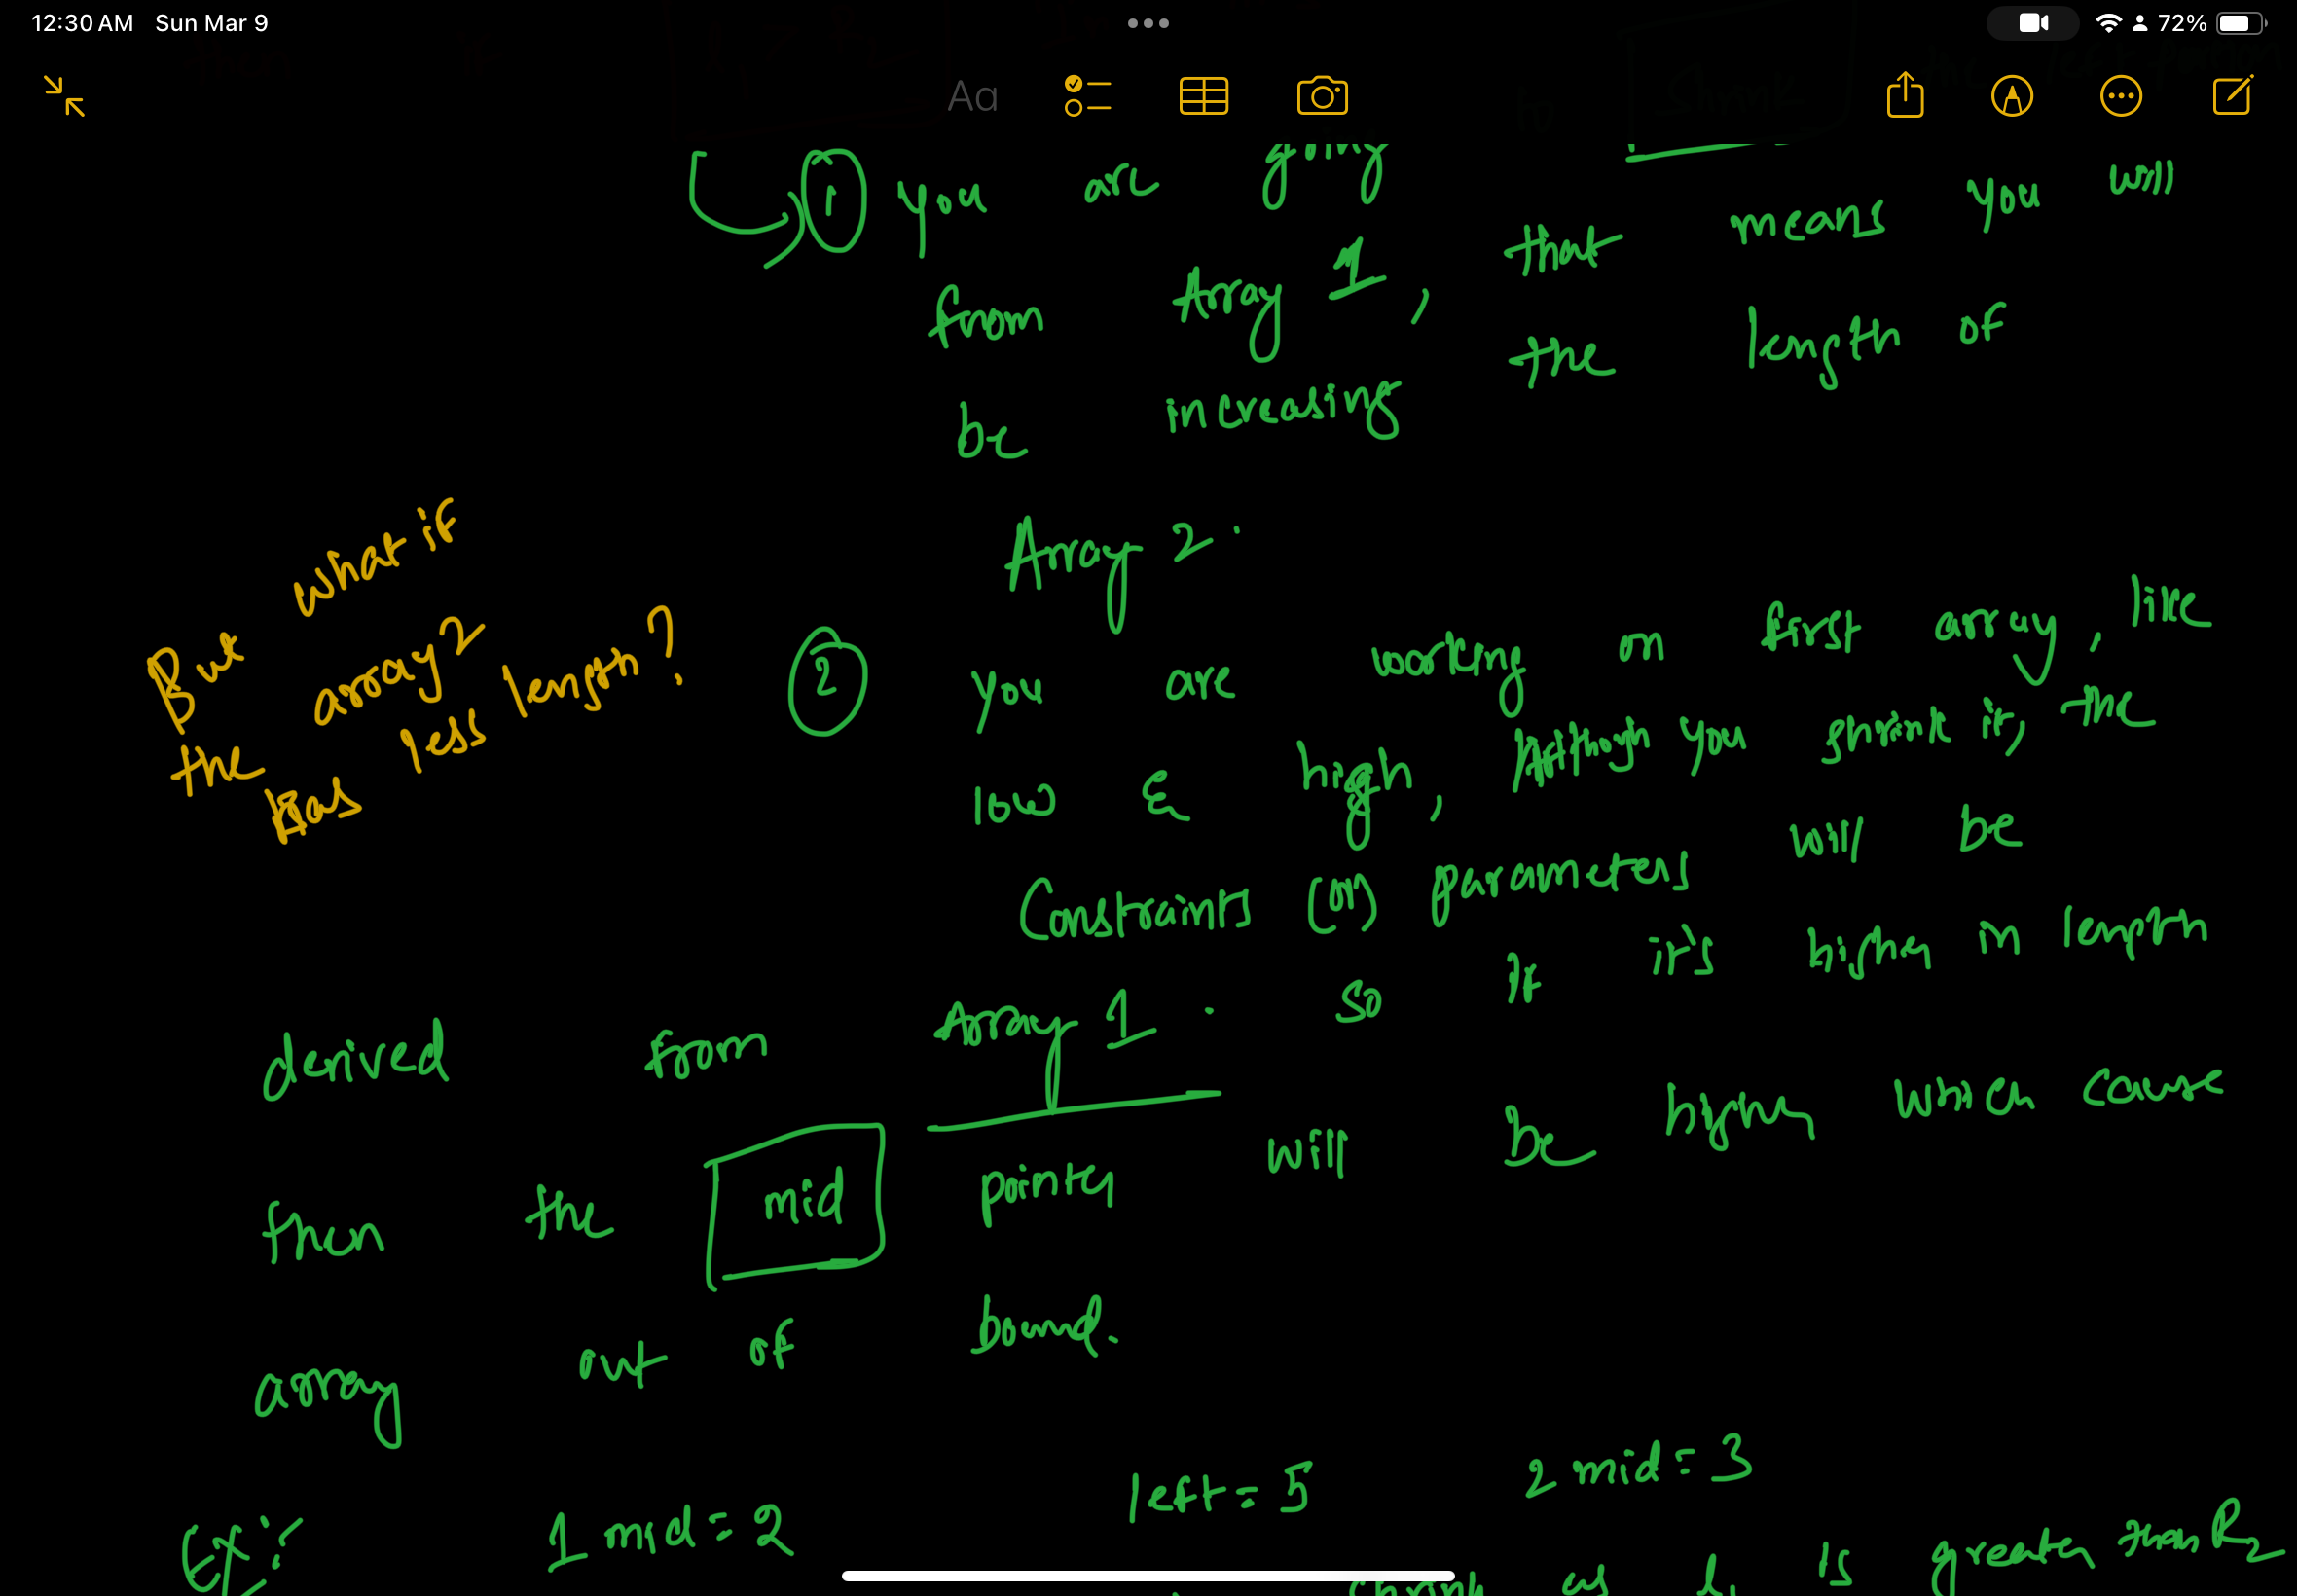 12:30 AM Sun Mar 9
72%
Aa
1 you are going
from Array 1, that means you will
be increasing the length of
Array 2.
But what if
the array2
has less length?
2 you are working on first array, like
low & high, Although you shrink it, the
Constraints (or) parameters will be
derived from Array 1. so if it's higher in length
then the mid pointer will be higher which cause
array out of bound.
Ex:- 1 mid = 2 left = 5 2 mid = 3
shrink as l1 is greater than R2